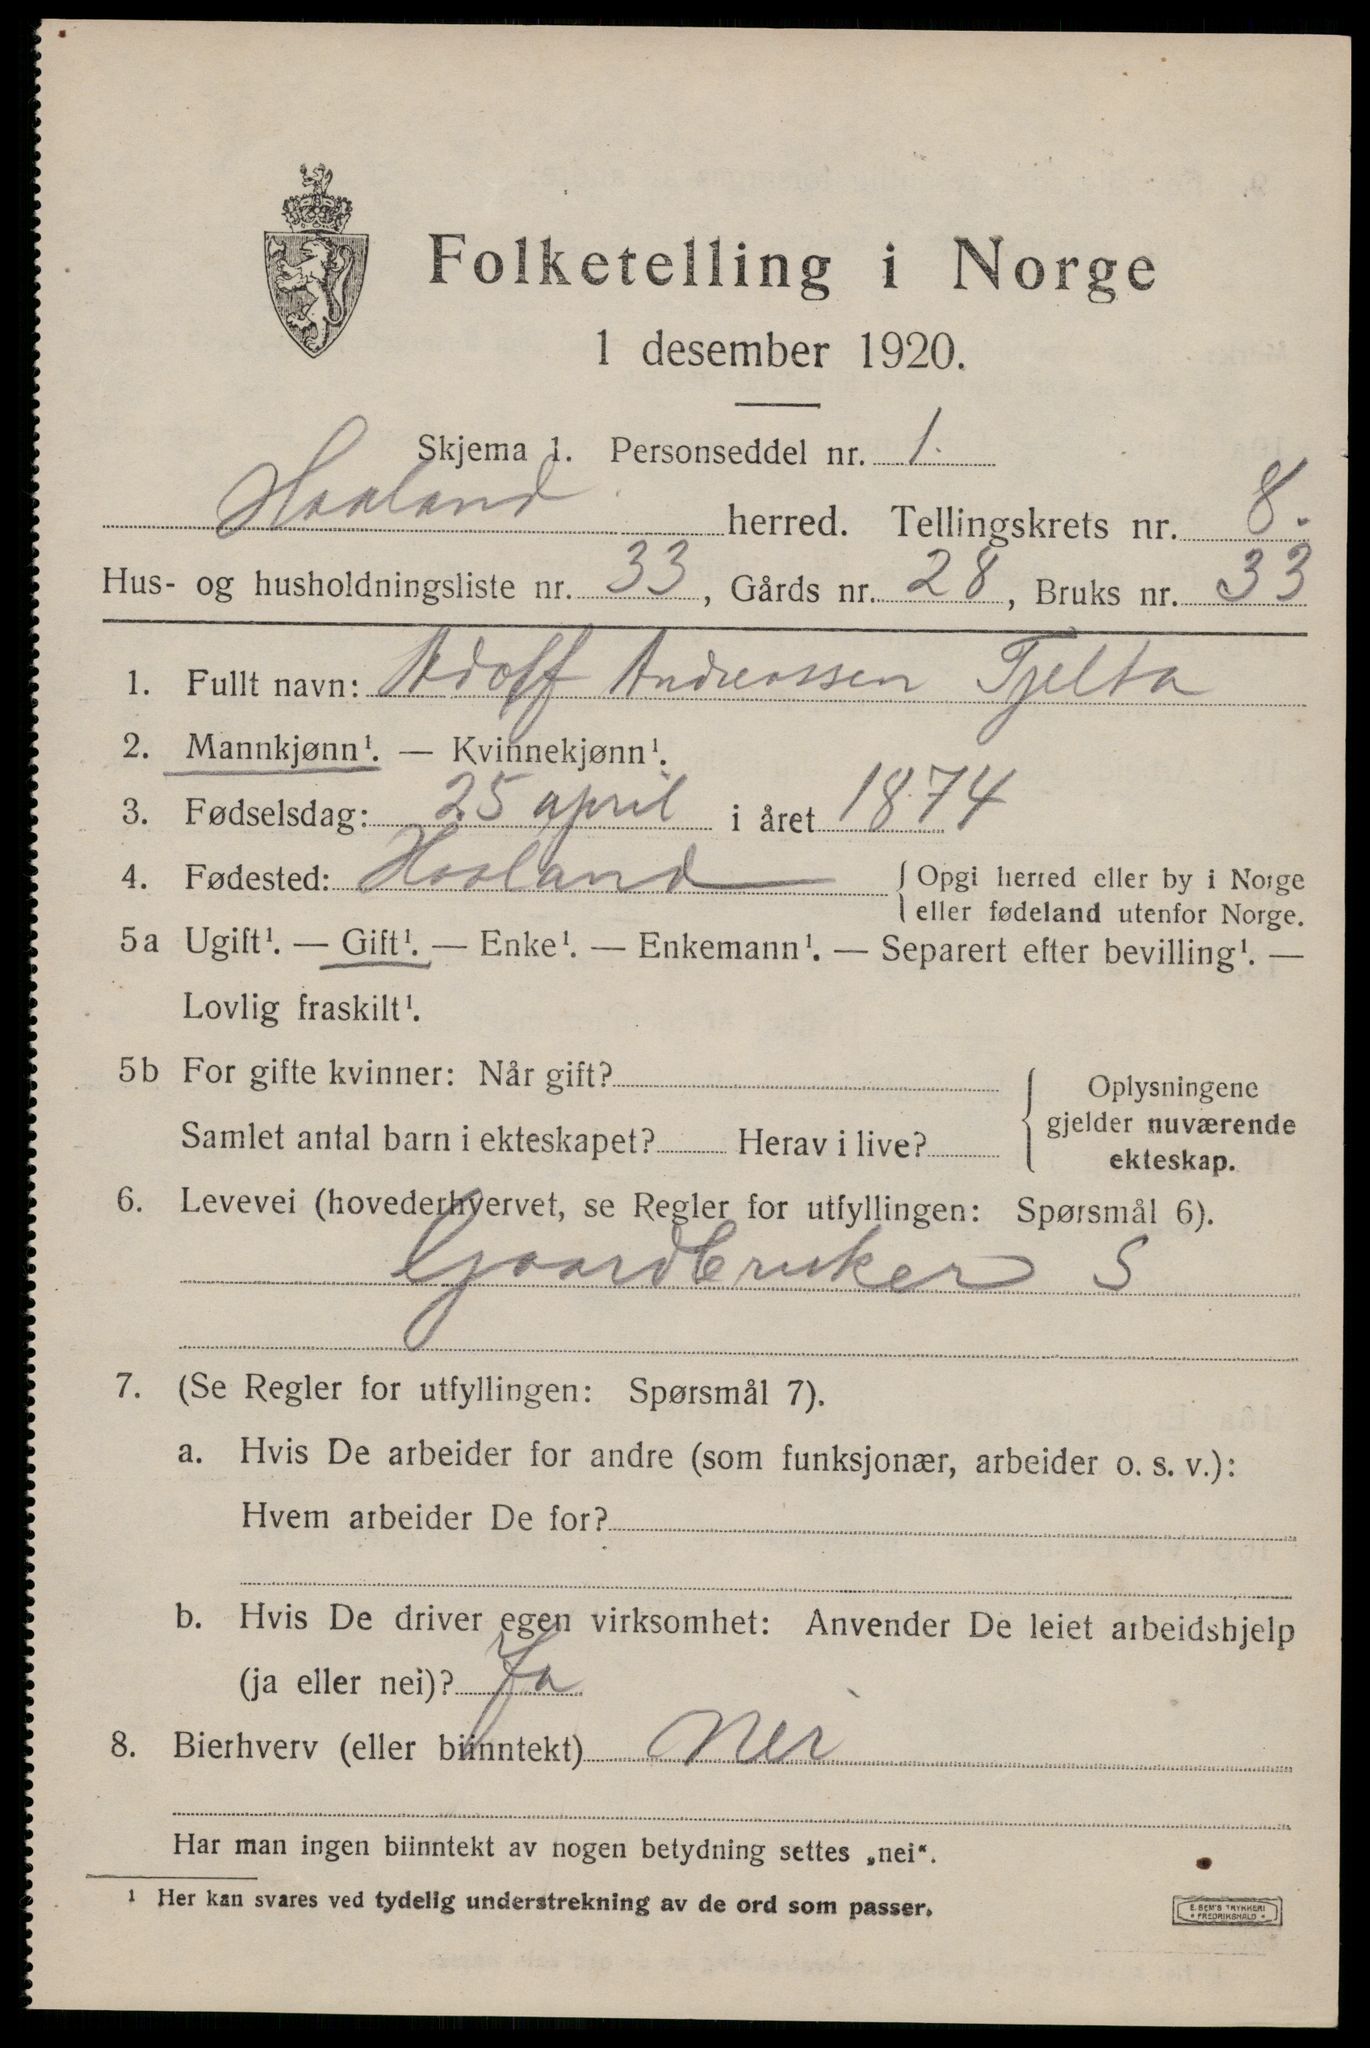 Folketelling i Norge
1 desember 1920.
Skjema 1. Personseddel nr. 1.
Haaland herred. Tellingskrets nr. 8.
Hus- og husholdningsliste nr. 33, Gårds nr. 28, Bruks nr. 33
1. Fullt navn: Adolf Andreassen Tjelta
2. Mannkjønn¹. — Kvinnekjønn¹.
3. Fødselsdag: 25 april i året 1874
4. Fødested: Haaland { Opgi herred eller by i Norge
eller fødeland utenfor Norge.
5a Ugift¹. — Gift¹. — Enke¹. — Enkemann¹. — Separert efter bevilling¹. —
Lovlig fraskilt¹.
5b For gifte kvinner: Når gift? { Oplysningene
Samlet antal barn i ekteskapet? Herav i live? gjelder nuværende
ekteskap.
6. Levevei (hovederhvervet, se Regler for utfyllingen: Spørsmål 6).
Gaardbruker S
7. (Se Regler for utfyllingen: Spørsmål 7).
a. Hvis De arbeider for andre (som funksjonær, arbeider o. s. v.):
Hvem arbeider De for?
b. Hvis De driver egen virksomhet: Anvender De leiet arbeidshjelp
(ja eller nei)? Ja
8. Bierhverv (eller biinntekt) Nei
Har man ingen biinntekt av nogen betydning settes „nei“.
¹ Her kan svares ved tydelig understrekning av de ord som passer.
E. SEM'S TRYKKERI
• FREDRIKSHALD •